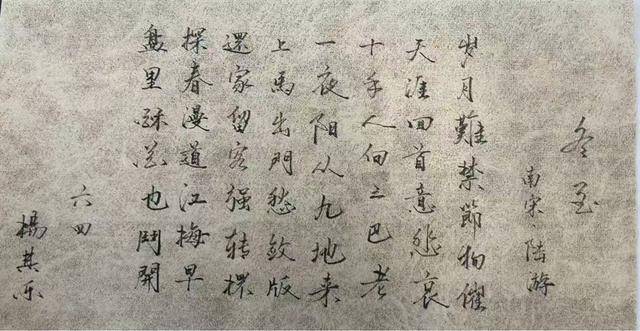 冬至
南宋·陆游
岁月難禁節物催
天涯回首意悲哀
十年人向三巴老
一夜阳从九地来
上馬出門愁敛版
還家留客强转杯
探春漫道江梅早
盘里酥花也鬥開
六四
楊其乐